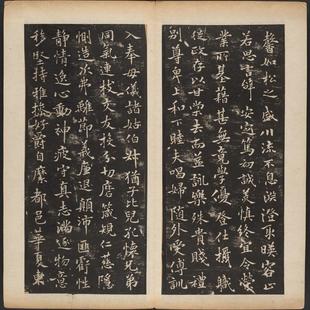 馨如松之盛川流不息淵澄取暎容止
若思言辭安定篤初誠美慎終宜令榮
業所基藉甚無竟學優登仕攝職
從政存以甘棠去而益詠樂殊貴賤禮
別尊卑上和下睦夫唱婦隨外受傅訓
入奉母儀諸姑伯叔猶子比兒孔懷兄弟
同氣連枝交友投分切磨箴規仁慈隱
惻造次弗離節義廉退顛沛匪虧性
靜情逸心動神疲守真志滿逐物意
移堅持雅操好爵自縻都邑華夏東